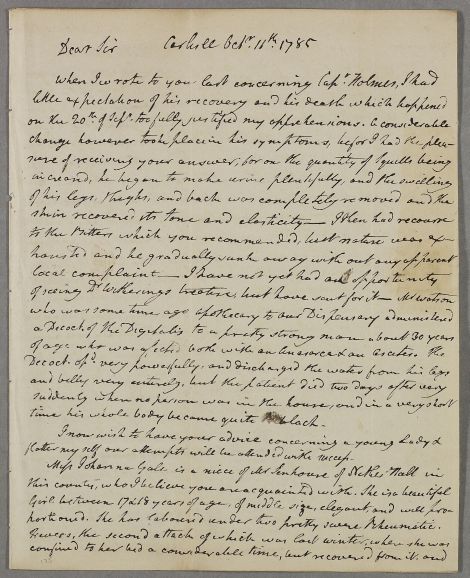 Dear Sir Carlisle Octr. 11th. 1785
When I wrote to you last concerning Capt. Holmes, I had
little expectation of his recovery and his death which happened
on the 20th. of Sept. too fully justified my apprehensions. A considerable
change however took place in his symptoms, before I had the plea-
sure of receiving your answer, for on the quantity of Squills being
increased, he began to make urine plentifully, and the swelling
of his legs, thighs, and back was completely removed and the
skin recovered its tone and elasticity — I then had recourse
to the Bitters which you recommended, but nature was ex-
hausted and he gradually sank away without any apparent
local complaint — I have not yet had an opportunity
of seeing Dr. Witherings treatise, but have sent for it — Mr Watson
who was some time ago apothecary to our Dispensary administered
a Decoct. of the Digitalis to a pretty strong man about 30 years
of age who was afflicted both with an anasarca & an ascites. The
Decoct. opd. very powerfully, and discharged the water from his legs
and belly very entirely, but the patient died two days after very
suddenly when no person was in the house, and in a very short
time his whole body became quite black.
I now wish to have your advice concerning a young Lady &
flatter myself our attempts will be attended with success.
Miss Johanna Gale is a niece of Mr Senhouse of Nether-Hall in
this county, who I believe you are acquainted with. She is a beautiful
Girl between 17 & 18 years of age, of middle size, elegant and well pro-
portioned. She has laboured under two pretty severe Rheumatic
Fevers, the second attack of which was last winter, when she was
confined to her bed a considerable time, but recovered from it, and